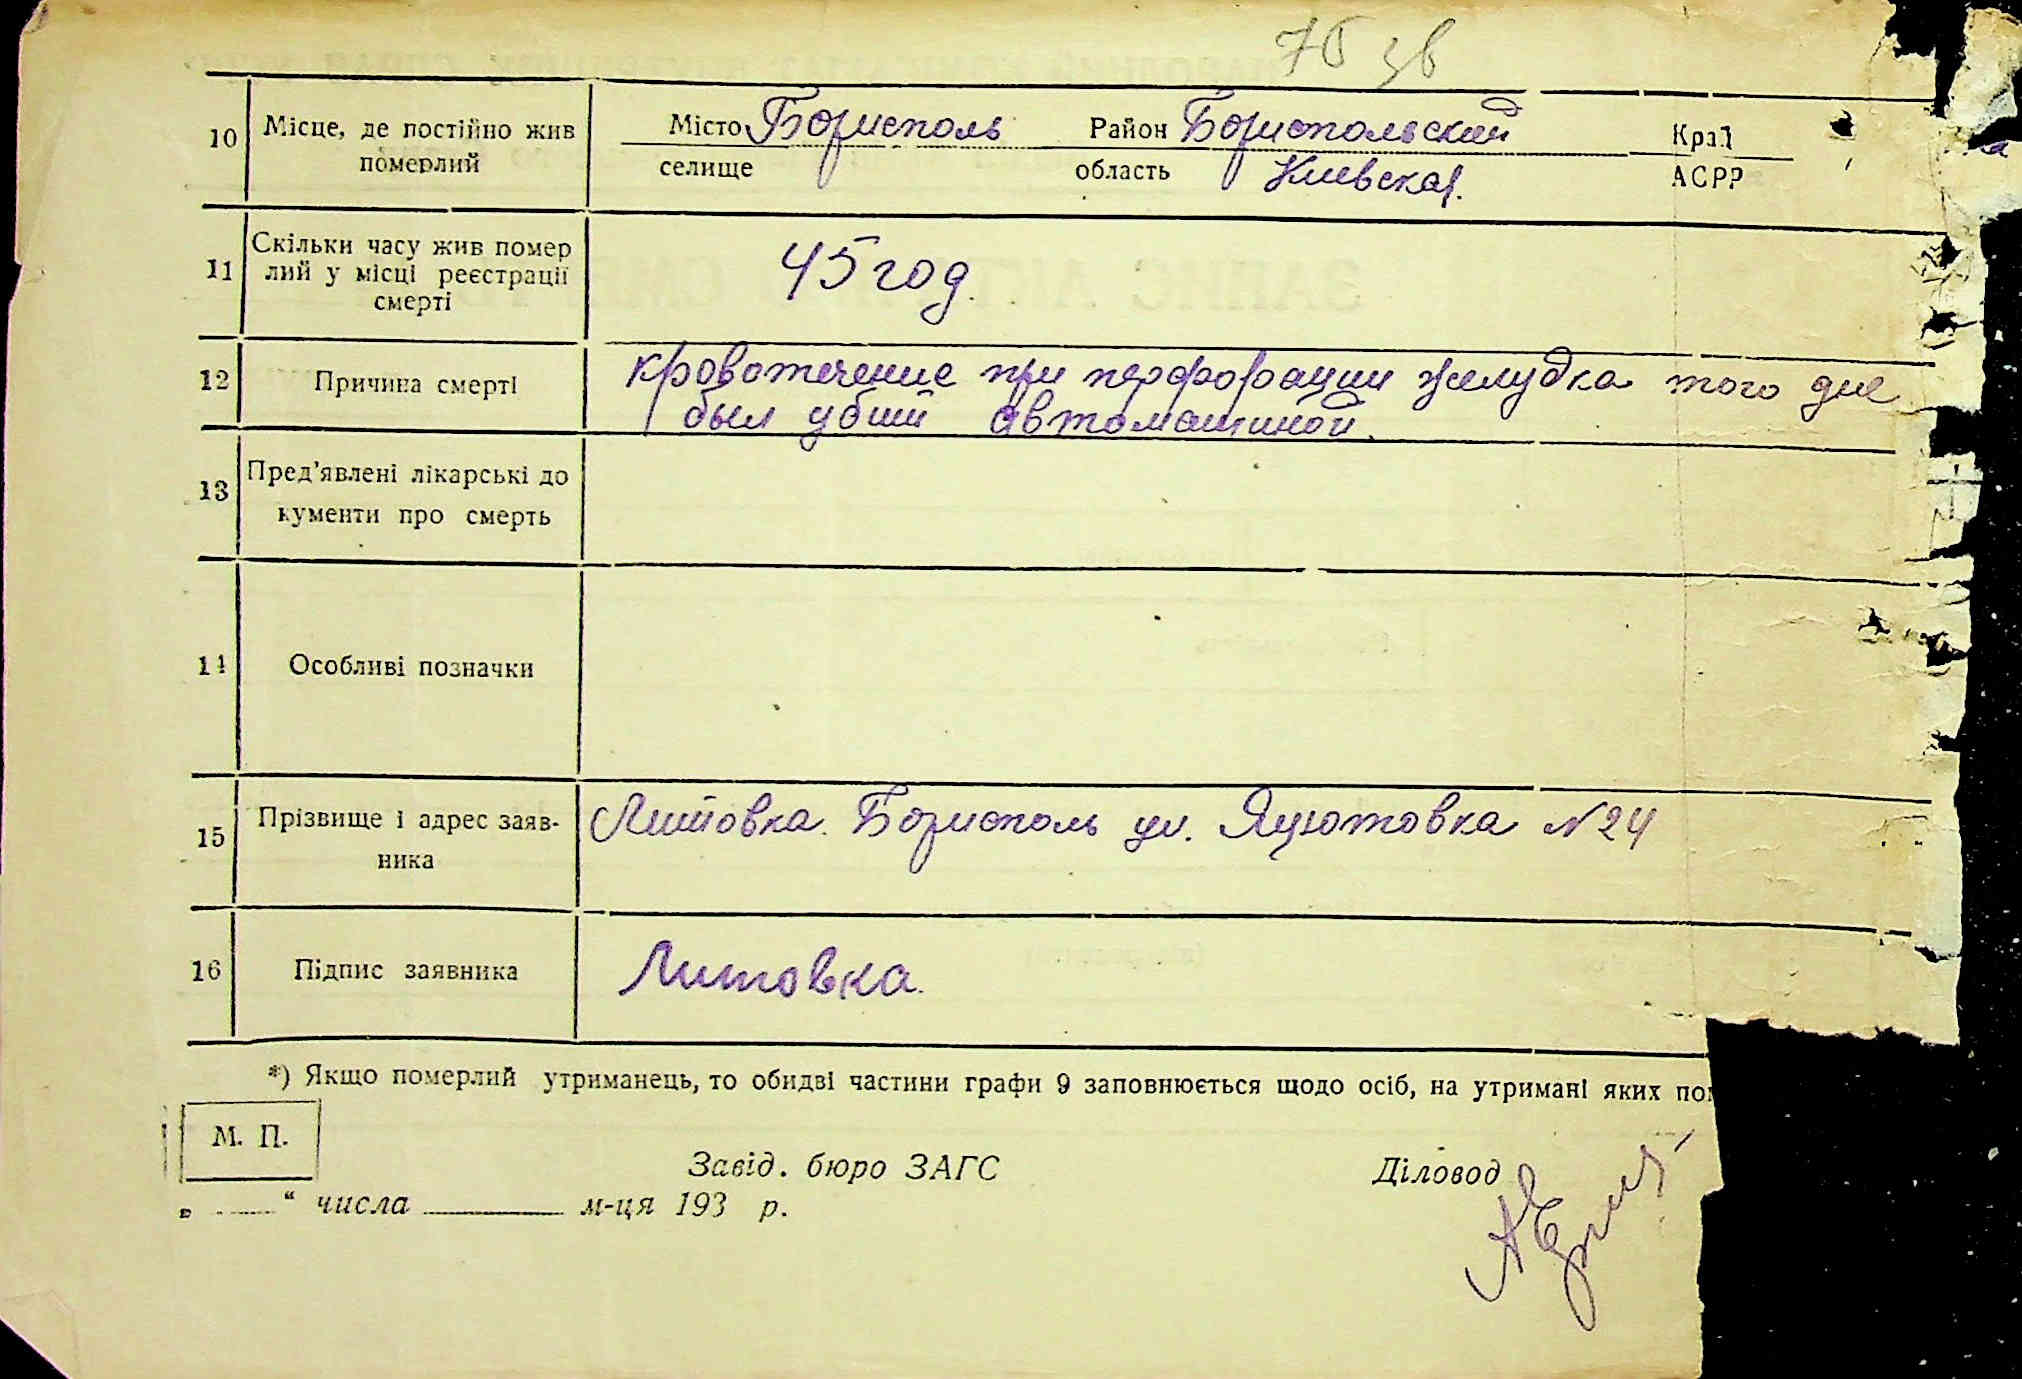 76 зв
10 Місце, де постійно жив померлий
Місто Борисполь Район Бориспольский Край
селище область Киевская. АСРР
11 Скільки часу жив помер
лий у місці реєстрації
смерті
45 год.
12 Причина смерті
кровотечение при перфорации желудка того дне
был убит автомашиной.
13 Пред'явлені лікарські до
кументи про смерть
14 Особливі позначки
15 Прізвище і адрес заяв-
ника
Литовка. Борисполь ул. Яцютовка №24
16 Підпис заявника
Литовка.
*) Якщо померлий утриманець, то обидві частини графи 9 заповнюється щодо осіб, на утримані яких
М. П.
Завід. бюро ЗАГС Діловод
„ “ числа м-ця 193 р.